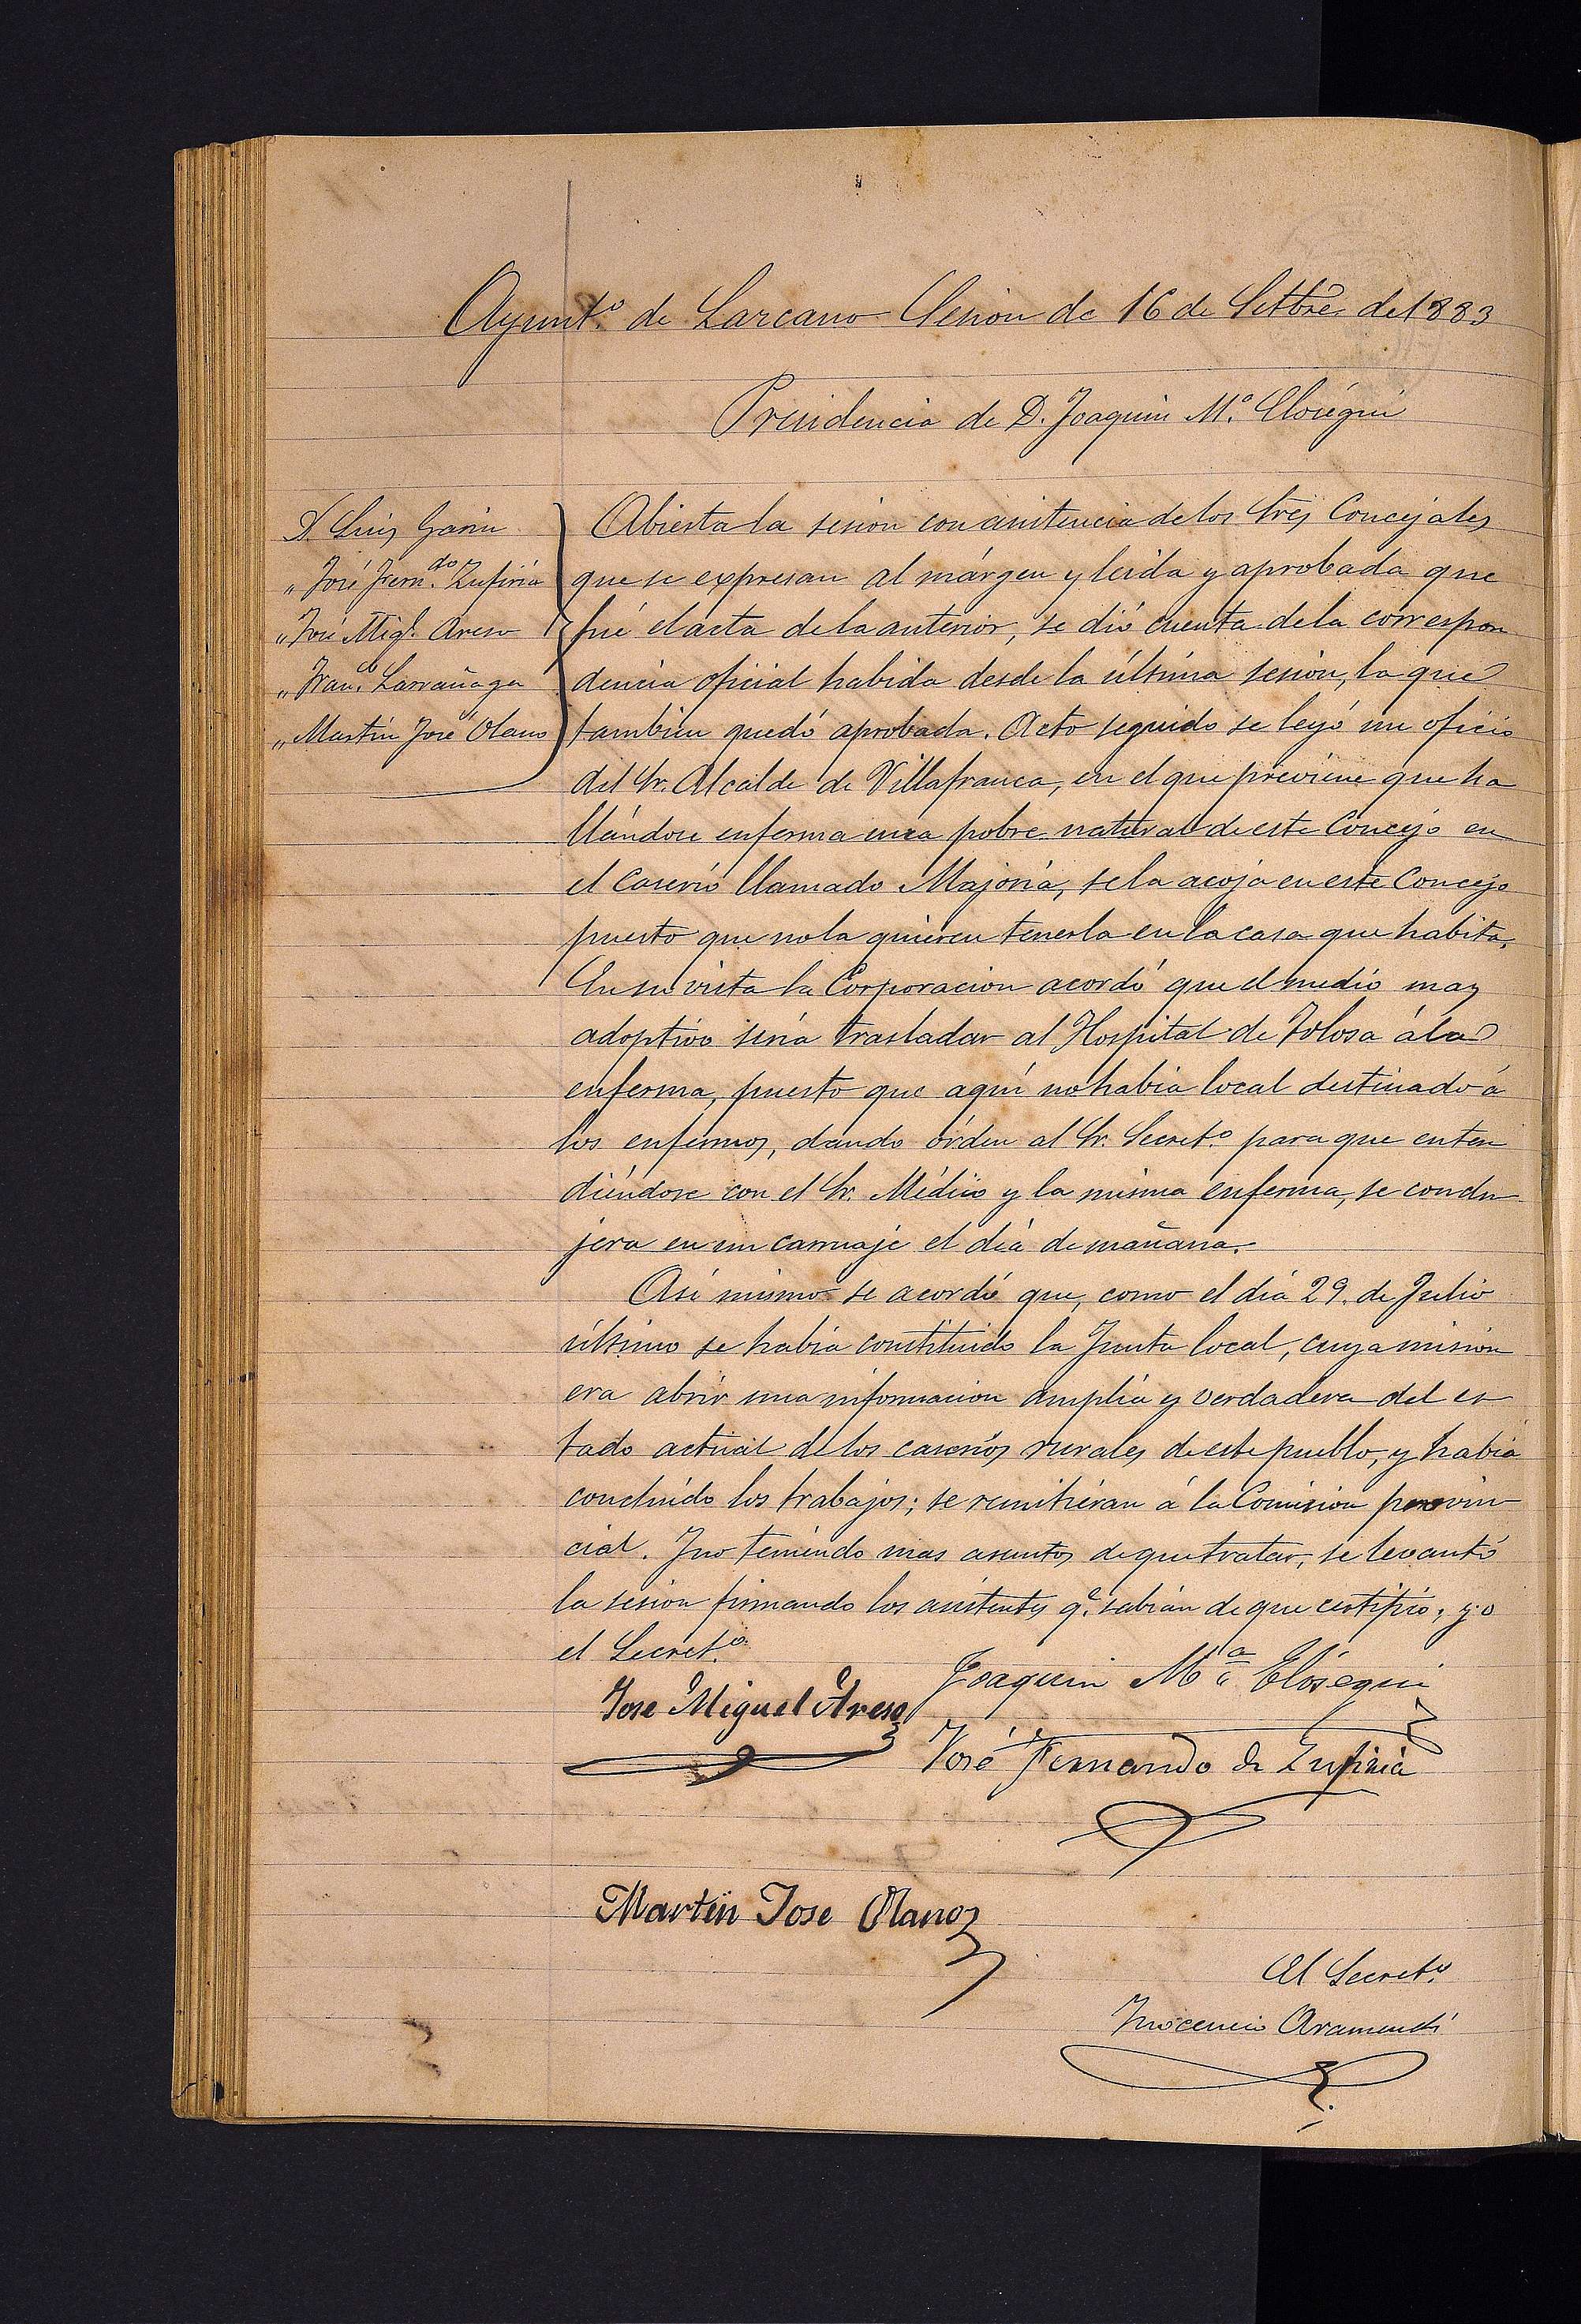 Ayunt.º de Larcano Sesion de 16 de Settbre de 1883
Presidencia de D. Joaquin M.ª Eloségui
D. Luis Garin
„ José Fern.do Zufiria
„ José Migl. Areso
„ Fran.co Larrañaga
„ Martin José Olano
Abierta la sesion con asistencia de los Sres Concejales
que se expresan al márgen y leida y aprobada que
fué el acta de la anterior, se dió cuenta de la correspon
dencia oficial habida desde la última sesion, la que
tambien quedó aprobada. Acto seguido se leyó un oficio
del Sr. Alcalde de Villafranca, en el que previene que ha
llándose enferma una pobre natural de este Concejo en
el caserío llamado Majoría, se la acoja en este Concejo
puesto que no la quieren tenerla en la casa que habita.
En su vista la Corporacion acordó que el medio mas
adoptivo sería trasladar al Hospital de Tolosa á la
enferma, puesto que aquí no habia local destinado á
los enfermos, dando órden al Sr. Secret.º para que enten
diéndose con el Sr. Médico y la misma enferma, se condu
jera en un carruaje el día de mañana.
Asi mismo se acordó que, como el dia 29. de Julio
último se habia constituido la Junta local, cuya mision
era abrir una informacion amplia y verdadera del es
tado actual de los caseríos rurales de este pueblo, y habia
concluido los trabajos; se remitieran á la Comision provin
cial. Y no teniendo mas asuntos de que tratar, se levantó
la sesion firmando los asistentes q.e sabian de que certifico, yo
el Secret.º
Joaquin M.ª Elósegui
Jose Miguel Areso
José Fernando de Zufiria
Martin Jose Olano
El Secret.º
Inocencio Aramendi